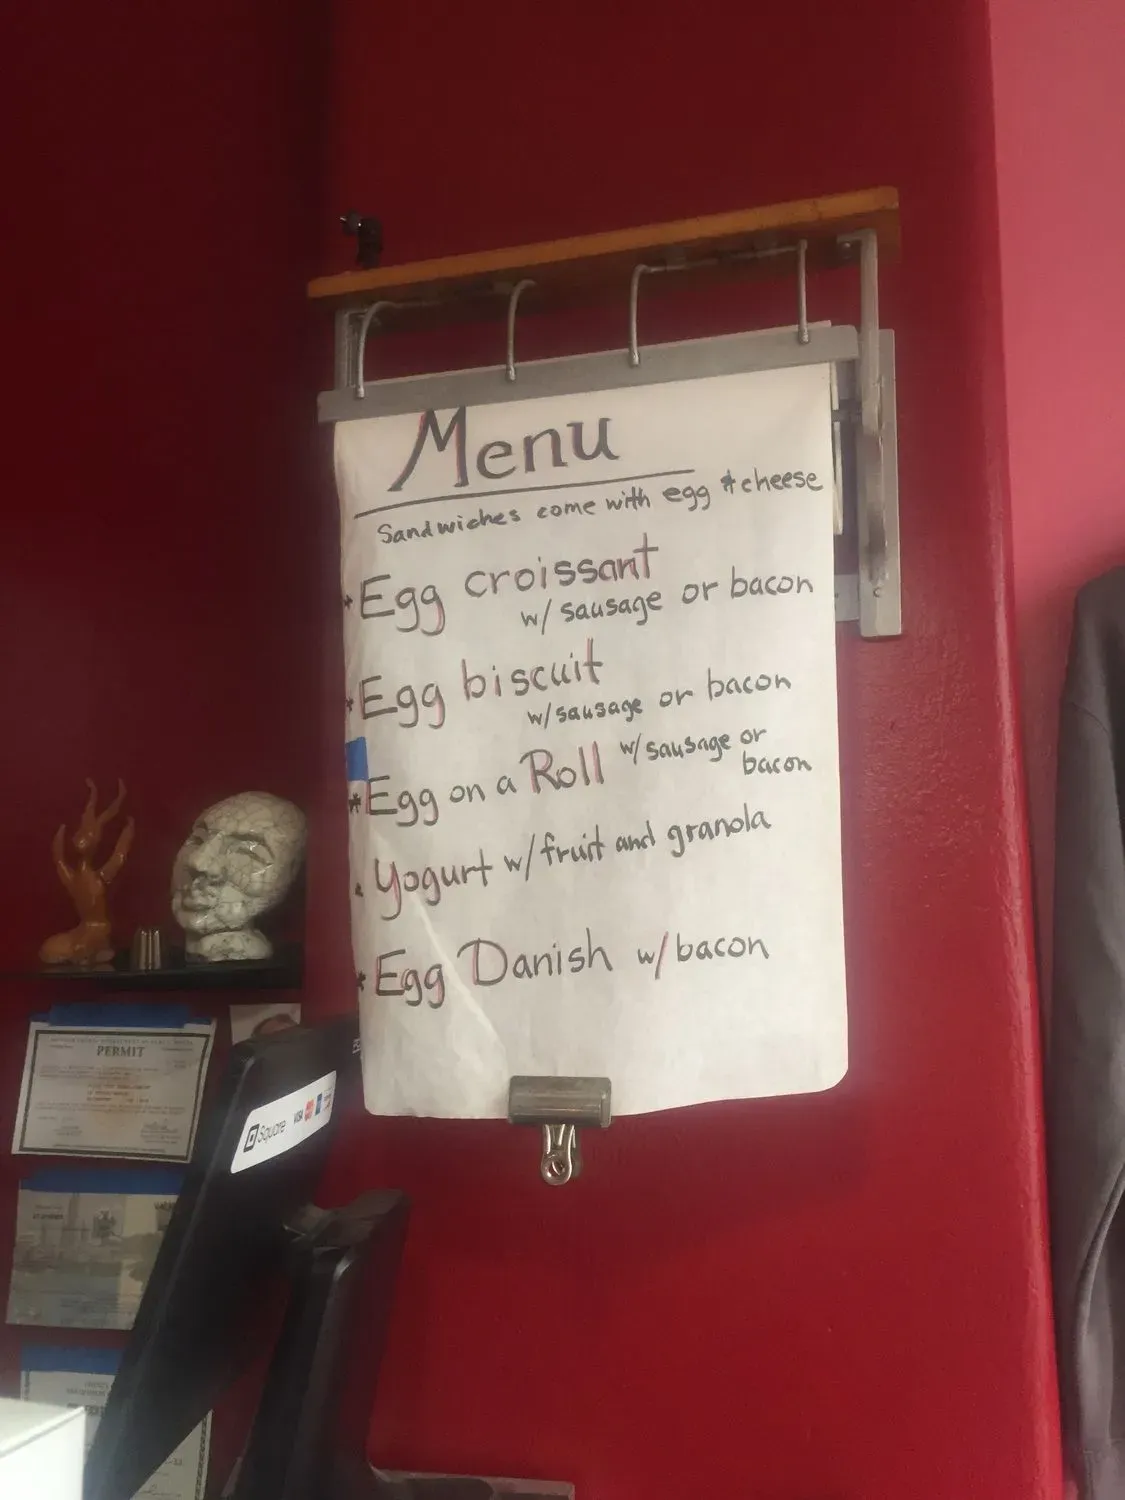 Menu
Sandwiches come with egg & cheese
* Egg croissant
w/ sausage or bacon
* Egg biscuit
w/ sausage or bacon
* Egg on a Roll w/ sausage or
bacon
* Yogurt w/ fruit and granola
* Egg Danish w/ bacon
PERMIT
Square VISA